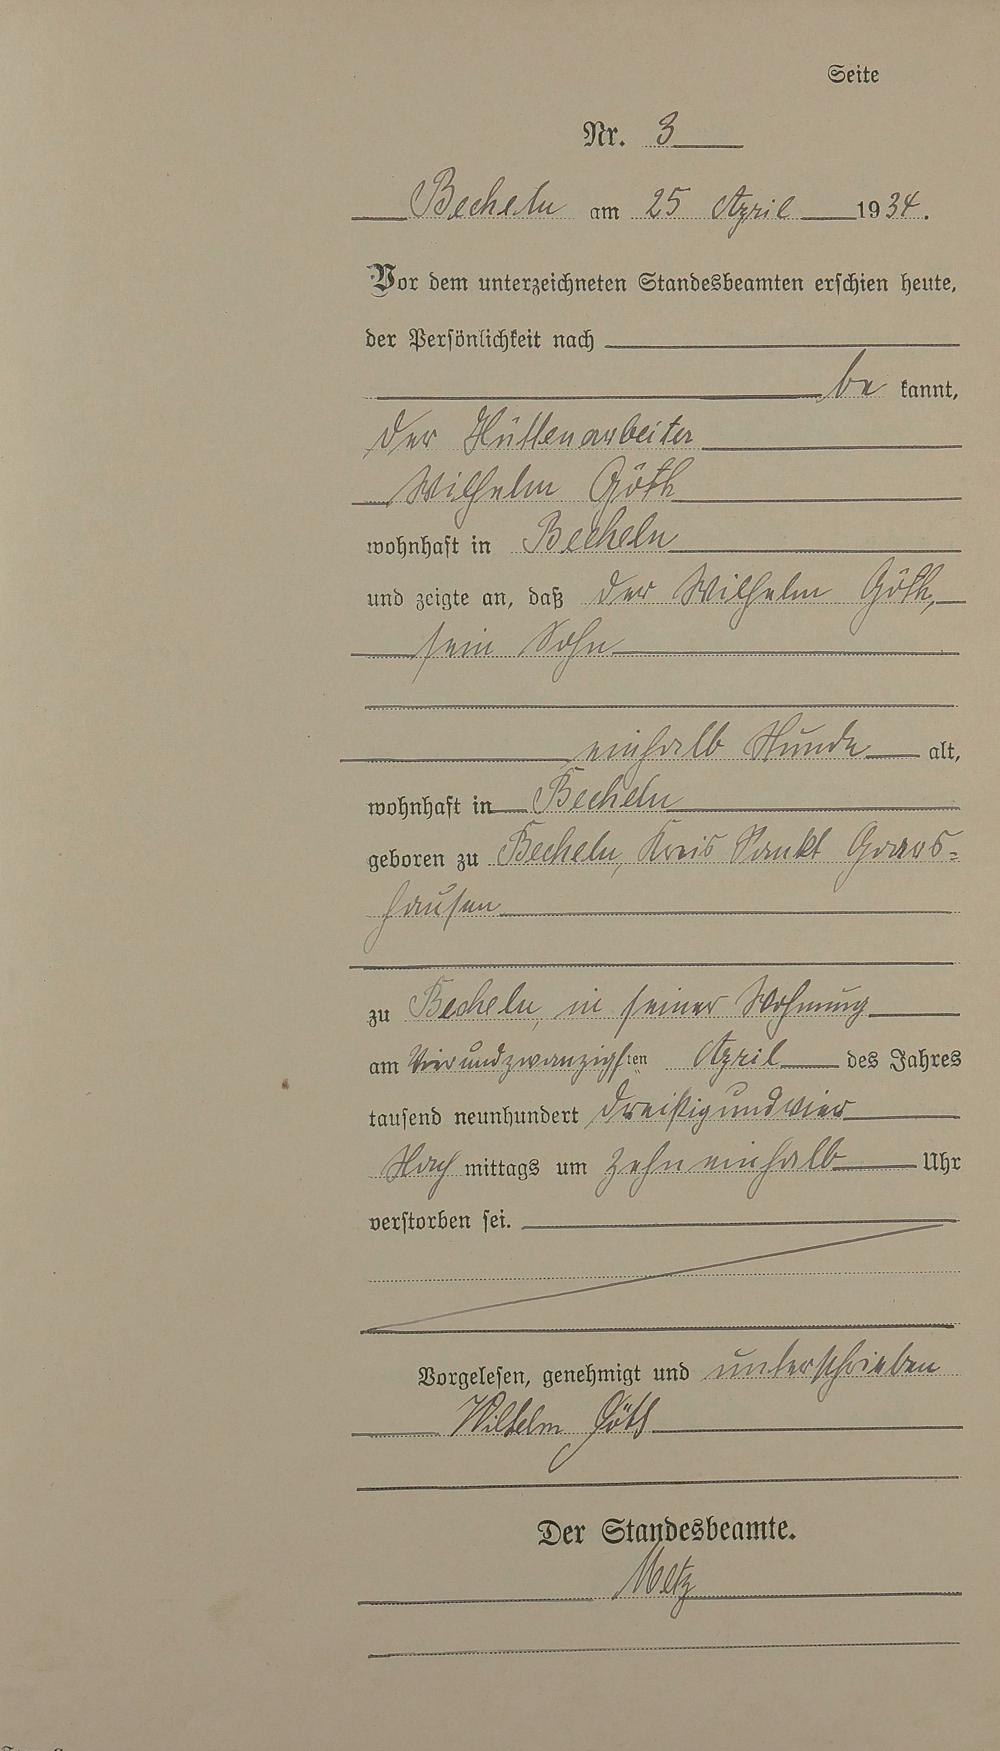 Seite
Nr. 3
Becheln am 25 April 1934.
Vor dem unterzeichneten Standesbeamten erschien heute,
der Persönlichkeit nach
be kannt,
der Hüttenarbeiter
Wilhelm Göth
wohnhaft in Becheln
und zeigte an, daß der Wilhelm Göth,
sein Sohn
einhalb Stunde alt,
wohnhaft in Becheln
geboren zu Becheln, Kreis Sankt Goars-
hausen
zu Becheln, in seiner Wohnung
am Vierundzwanzigsten April des Jahres
tausend neunhundert dreißigundvier
Nach mittags um zehneinhalb Uhr
verstorben sei.
Vorgelesen, genehmigt und unterschrieben
Wilhelm Göth
Der Standesbeamte.
Metz